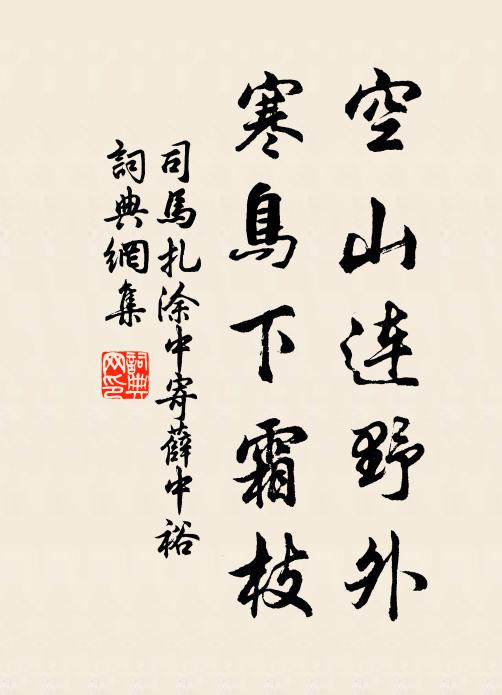 空山连野外
寒鳥下霜枝
司馬扎涂中寄薛中裕
詞典網集
詞典网印